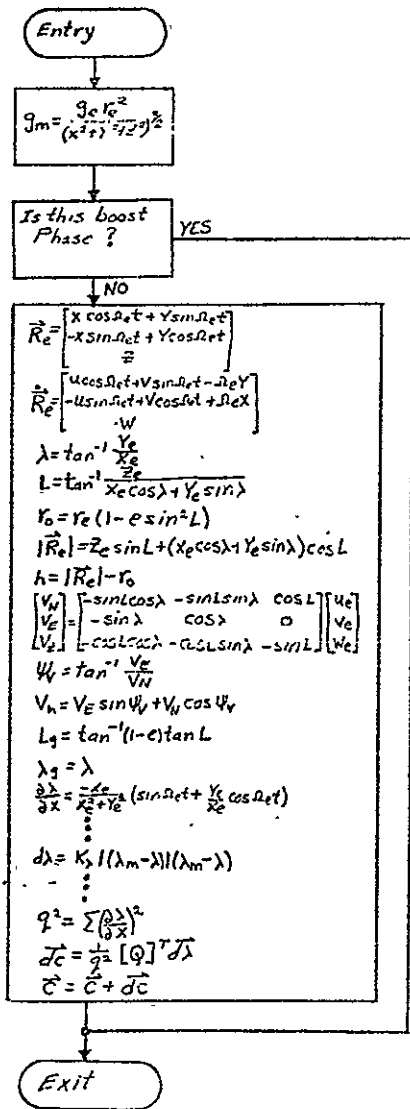 Entry
g_m = g_e r_e² / (x²+y²+z²)^{3/2}
Is this boost
Phase ?
YES
NO
R⃗_e = [x cosΩ_e t + Y sinΩ_e t
-x sinΩ_e t + Y cosΩ_e t
Z]
R⃗̇_e = [u cosΩ_e t + V sinΩ_e t - Ω_e Y
-u sinΩ_e t + V cosΩ_e t + Ω_e X
W]
λ = tan⁻¹ Y_e / X_e
L = tan⁻¹ Z_e / (X_e cosλ + Y_e sinλ)
r_o = r_e (1 - e sin² L)
|R⃗_e| = Z_e sin L + (X_e cosλ + Y_e sinλ) cos L
h = |R⃗_e| - r_o
[V_N] = [-sinL cosλ -sinL sinλ cosL] [u_e]
[V_E] [-sinλ cosλ 0] [v_e]
[V_Z] [-cosL cosλ -cosL sinλ -sinL] [w_e]
Ψ_V = tan⁻¹ V_E / V_N
V_h = V_E sin Ψ_V + V_N cos Ψ_V
L_g = tan⁻¹ (1-e) tan L
λ_g = λ
∂λ/∂X = -X_e / (X_e² + Y_e²) (sinΩ_e t + Y_e/X_e cosΩ_e t)
dλ = K_λ |(λ_m - λ)|(λ_m - λ)
q² = Σ(∂λ/∂X)²
dc⃗ = 1/q² [Q]^T dλ⃗
c⃗ = c⃗ + dc⃗
Exit